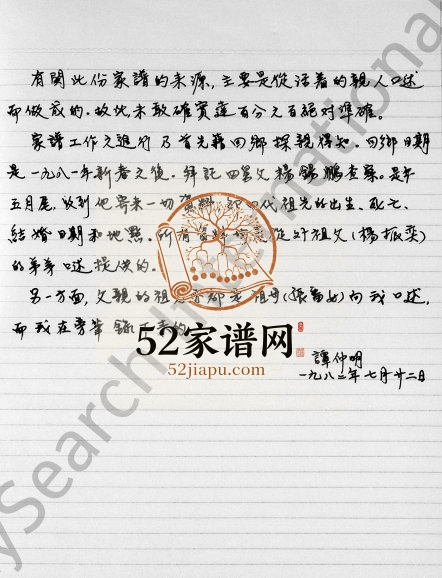 有關此份家譜的来源，主要是從活着的親人口述
而做成的。故此未敢確實達百分之百絕對準確。
家譜工作之進行乃首先藉回鄉探親得知。回鄉日期
是一九八一年新春之後。拜託四里父楊錦鵬查察。是年
五月尾，收到他寄来一切資料。記四代祖先的出生、死亡、
結婚日期和地點。所有資料 從外祖父（楊振奕）
的弟弟口述提供的。
另一方面，父親的祖 祖母 向我口述，
而我在旁筆錄
譚仲明
一九八二年七月廿二日
52家谱网
52jiapu.com
MySearch International